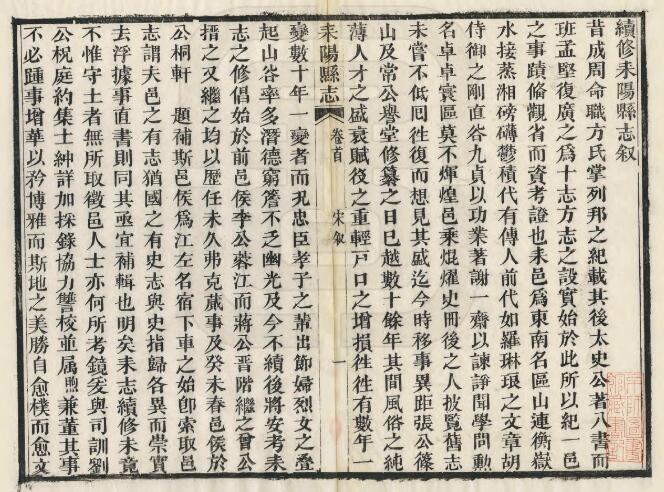 續修耒陽縣志叙
昔成周命職方氏掌列邦之紀載其後太史公著八書而
班孟堅復廣之爲十志方志之設實始於此所以紀一邑
之事蹟俻觀省而資考證也耒邑爲東南名區山連衡嶽
水接蒸湘磅礴鬱積代有傳人前代如羅琳琅之文章胡
侍御之剛直谷九貞以功業著謝一齋以諫諍聞學問勳
名卓卓寰區莫不煇煌邑乘焜燿史冊後之人披覧舊志
未嘗不低囘徃復而想見其盛迄今時移事異距張公篠
山及常公譽堂修纂之日已越數十餘年其間風俗之純
薄人才之盛衰賦役之重輕戸口之增損徃徃有數年一
耒陽縣志 卷首 宋叙 一
變數十年一變者而況忠臣孝子之輩出節婦烈女之叠
起山谷率多潛德窮簷不乏幽光及今不續後將安考耒
志之修倡始於前邑侯李公蓉江而蔣公晋階繼之曾公
搢之又繼之均以歴任未久弗克蕆事及癸未春邑侯於
公桐軒 題補斯邑侯爲江左名宿下車之始卽索取邑
志謂夫邑之有志猶國之有史志與史指歸各異而崇實
去浮據事直書則同其亟宜補輯也明矣耒志續修未竟
不惟守土者無所取徵邑人士亦何所考鏡爰與司訓劉
公柷庭約集士紳詳加採錄協力讐校並属煕兼董其事
不必踵事增華以矜博雅而斯地之美勝自愈樸而愈文